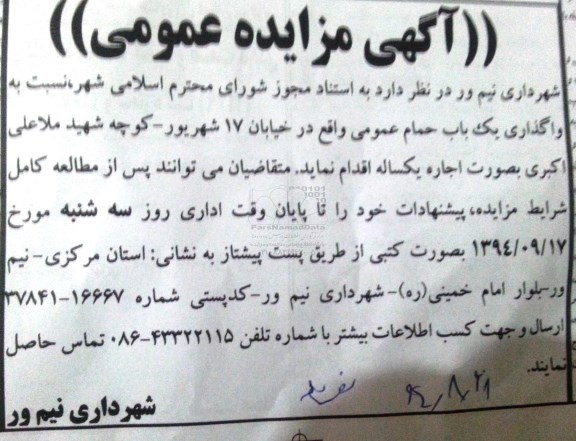 ((آگهی مزایده عمومی))
شهرداری نیم ور در نظر دارد به استناد مجوز شورای محترم اسلامی شهر،نسبت به
واگذاری یک باب حمام عمومی واقع در خیابان ۱۷ شهریور-کوچه شهید ملاعلی
اکبری بصورت اجاره یکساله اقدام نماید. متقاضیان می توانند پس از مطالعه کامل
شرایط مزایده، پیشنهادات خود را تا پایان وقت اداری روز سه شنبه مورخ
۱۳۹۴/۰۹/۱۷ بصورت کتبی از طریق پست پیشتاز به نشانی: استان مرکزی-نیم
ور-بلوار امام خمینی(ره)-شهرداری نیم ور-کدپستی شماره ۱۶۶۶۷-۳۷۸۴۱
ارسال و جهت کسب اطلاعات بیشتر با شماره تلفن ۴۳۳۲۲۱۱۵-۰۸۶ تماس حاصل
نمایند.
۹۴/۸/۲۱
شهرداری نیم ور
ParsNamadData